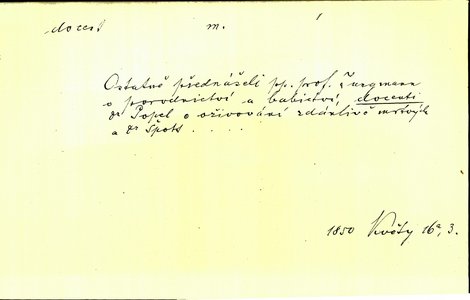 docent m.
Ostatně přednášeli pp. prof. Jungmann
o porodnictví a babictví, docenti
Dr Popel o oživování zdánlivě mrtvých
a Dr Špott . . . .
1850 Květy 16a, 3.